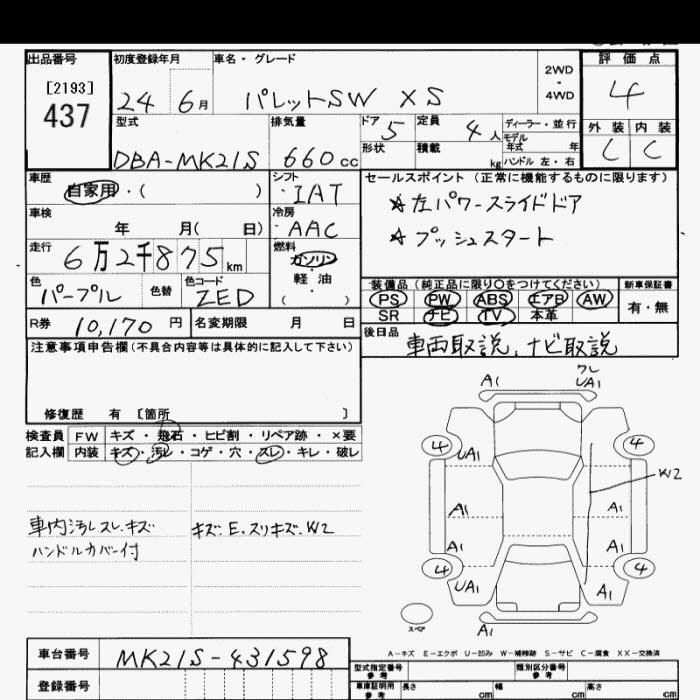 出品番号 初度登録年月 車名・グレード 評価点
[2193]
437
24 6月 パレットSW XS 2WD・4WD 4
型式 排気量 ドア 定員 ディーラー・並行 外装 内装
DBA-MK21S 660cc 5 4人 モデル年式 年 C C
形状 積載 kg ハンドル 左・右
車歴 シフト セールスポイント (正常に機能するものに限ります)
自家用・( ) IAT ☆左パワースライドドア
車検 冷房
年 月( 日) AAC ☆プッシュスタート
走行 燃料
6万2千875km ガソリン
軽油
( )
色 色替 色コード 装備品 (純正品に限り○をつけてください) 新車保証書
パープル ZED PS PW ABS エアB AW 有・無
SR ナビ TV 本革
R券 10,170円 名変期限 月 日 後日品
車両取説、ナビ取説
注意事項申告欄(不具合内容等は具体的に記入して下さい)
修復歴 有 [箇所 ]
検査員 FW キズ・飛石・ヒビ割・リペア跡・×要
記入欄 内装 キズ・汚レ・コゲ・穴・スレ・キレ・破レ
A1 ワレ
UA1
4 4
UA1 W2
A1 A1
A1 A1
4 4
UA1 A1
スペア A1
車内汚レスレ.キズ キズ.E.スリキズ.W2
ハンドルカバー付
A-キズ E-エクボ U-凹み W-補修跡 S-サビ C-腐食 XX-交換済
車台番号 MK21S-431598
型式指定番号 参考 類別区分番号 参考
登録番号 車庫証明用 参考 長さ cm 幅 cm 高さ cm